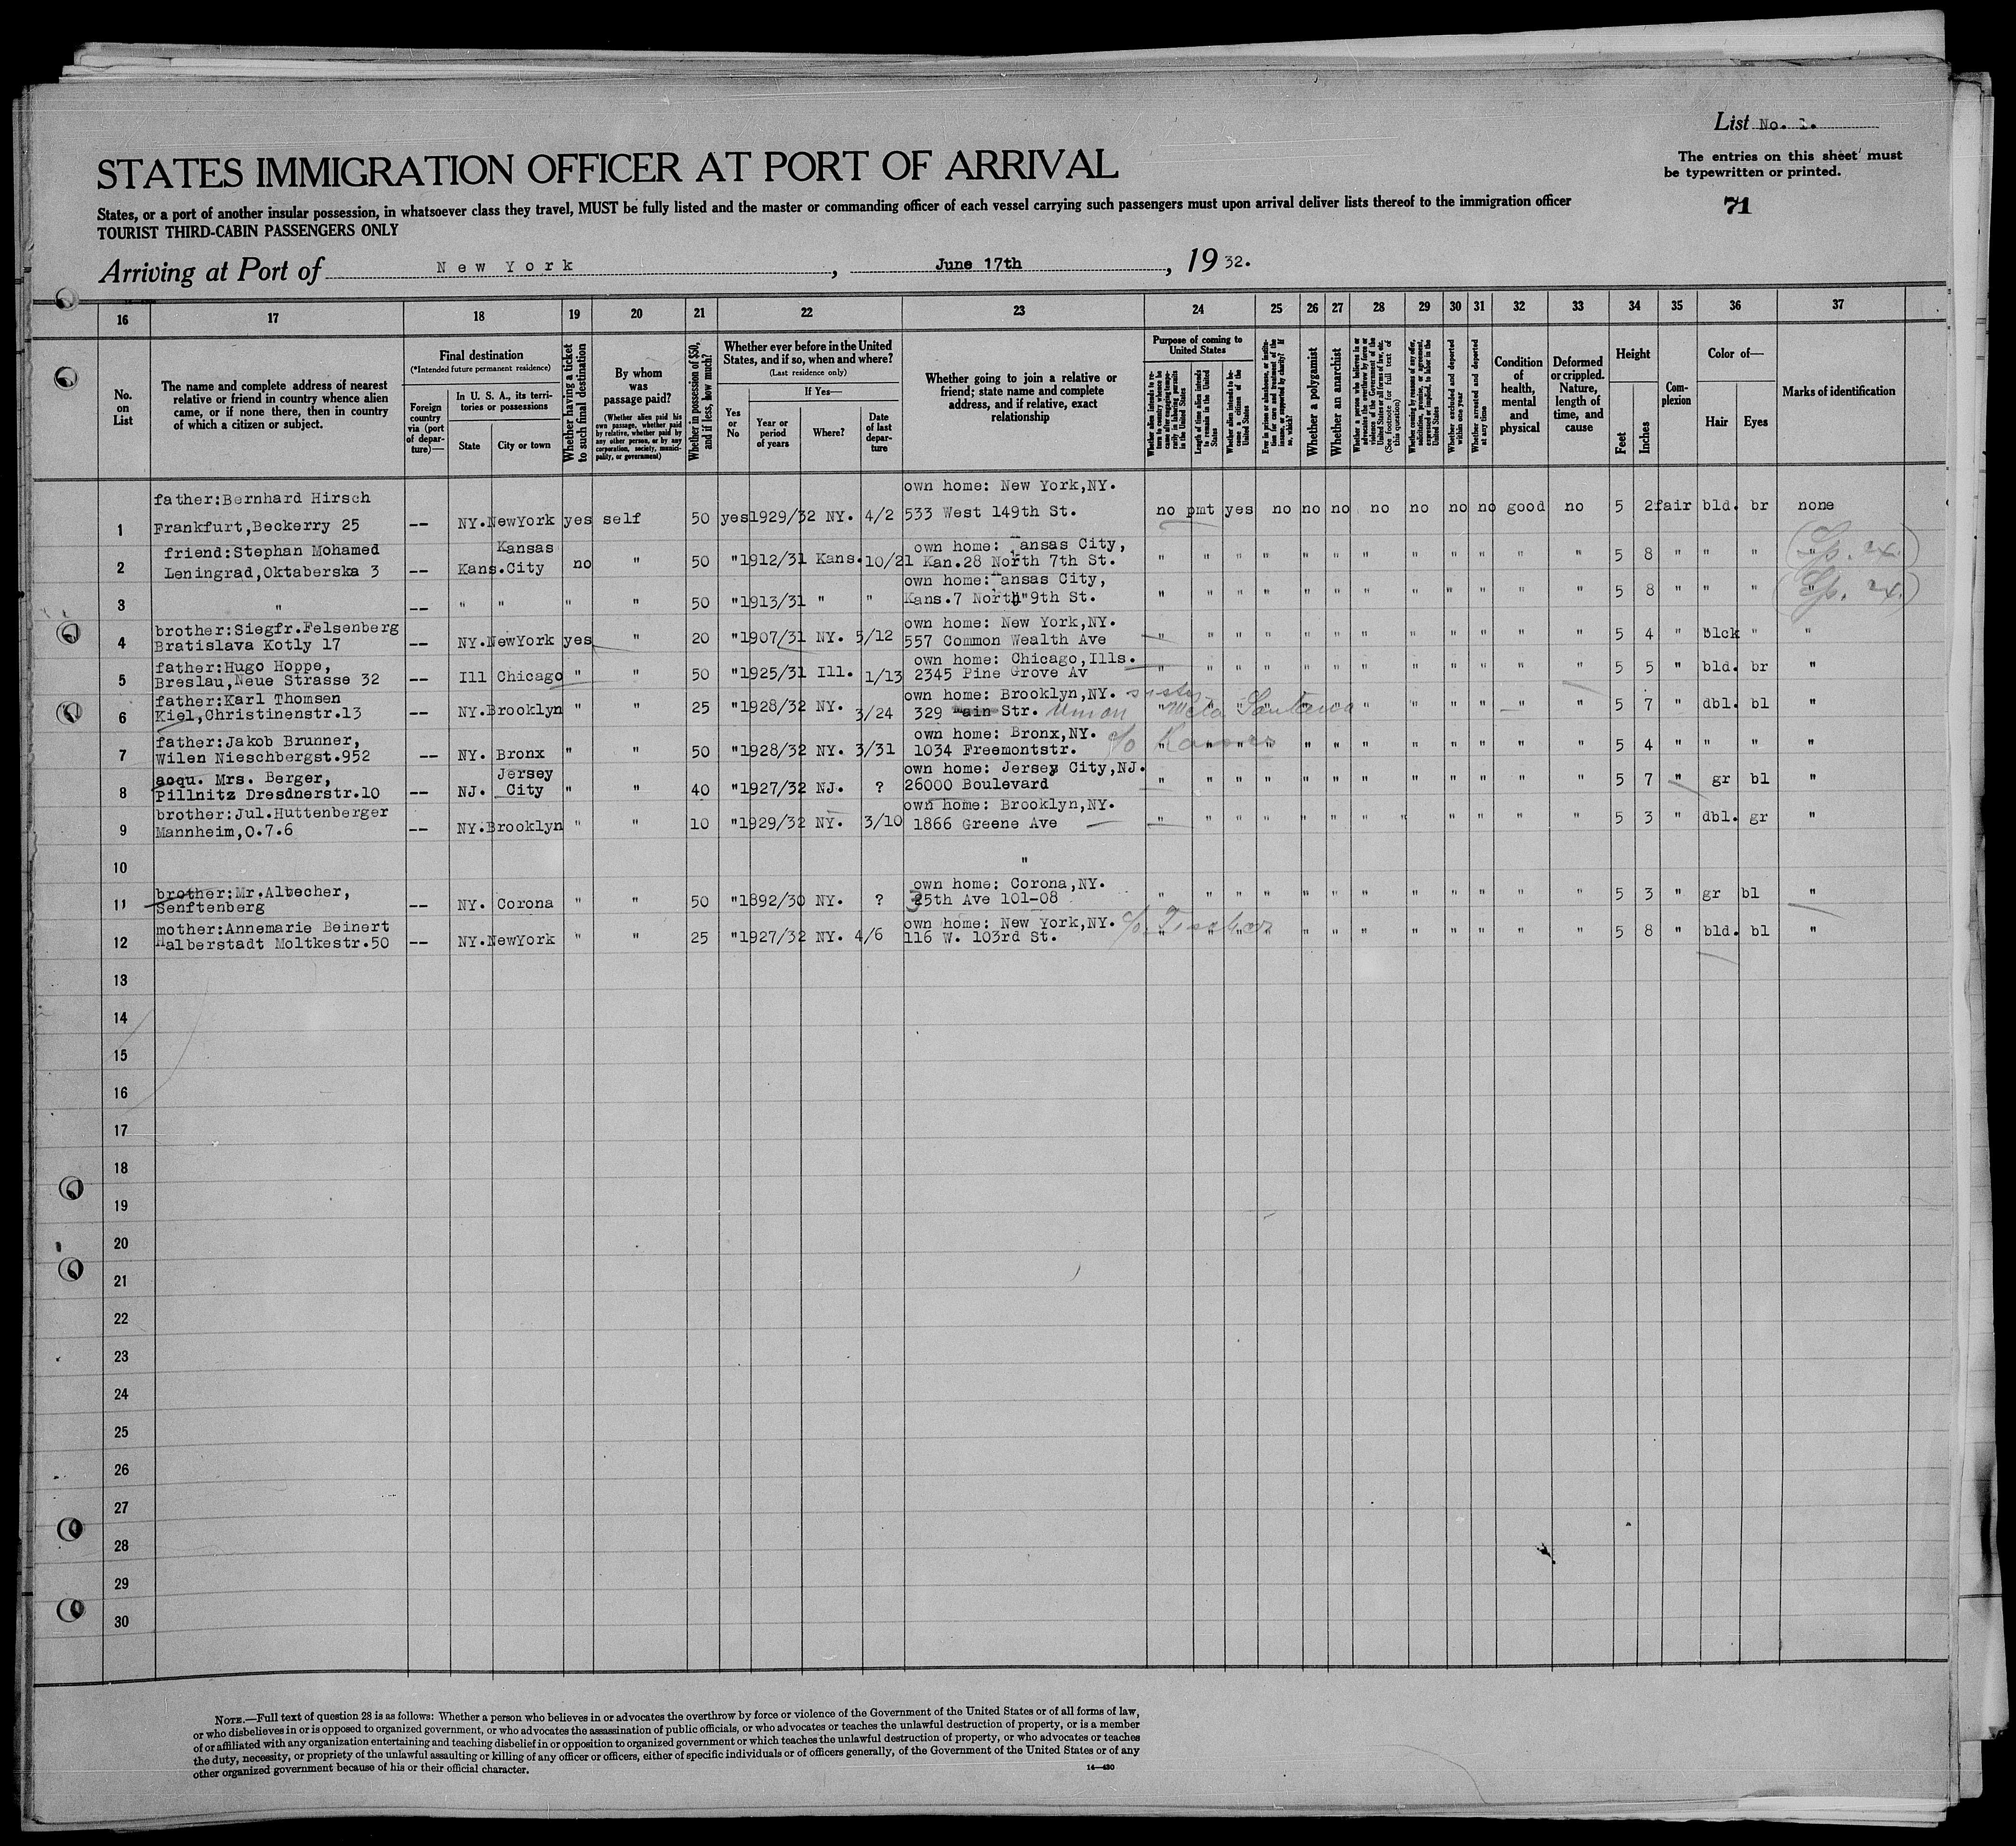 List No. 1.
STATES IMMIGRATION OFFICER AT PORT OF ARRIVAL
The entries on this sheet must
be typewritten or printed.
States, or a port of another insular possession, in whatsoever class they travel, MUST be fully listed and the master or commanding officer of each vessel carrying such passengers must upon arrival deliver lists thereof to the immigration officer
TOURIST THIRD-CABIN PASSENGERS ONLY
71
Arriving at Port of New York, June 17th, 1932.
16 17 18 19 20 21 22 23 24 25 26 27 28 29 30 31 32 33 34 35 36 37
No. on List
The name and complete address of nearest
relative or friend in country whence alien
came, or if none there, then in country
of which a citizen or subject.
Final destination
(*Intended future permanent residence)
Foreign country via (port of departure)—
In U. S. A., its territories or possessions
State
City or town
Whether having a ticket to such final destination
By whom was passage paid?
(Whether alien paid his own passage, whether paid by relative, whether paid by any other person, or by any corporation, society, municipality, or government)
Whether in possession of $50, and if less, how much?
Whether ever before in the United
States, and if so, when and where?
(Last residence only)
If Yes—
Yes or No
Year or period of years
Where?
Date of last departure
Whether going to join a relative or
friend; state name and complete
address, and if relative, exact
relationship
Purpose of coming to United States
Whether alien intends to return to country whence he came after engaging temporarily in laboring pursuits in the United States
Length of time alien intends to remain in the United States
Whether alien intends to become a citizen of the United States
Ever in prison or almshouse, or institution for care and treatment of the insane, or supported by charity? If so, which?
Whether a polygamist
Whether an anarchist
Whether a person who believes in or advocates the overthrow by force or violence of the Government of the United States or all forms of law, etc. (See footnote for full text of this question)
Whether coming by reasons of any offer, solicitation, promise, or agreement, expressed or implied, to labor in the United States
Whether excluded and deported within one year
Whether arrested and deported at any time
Condition of health, mental and physical
Deformed or crippled. Nature, length of time, and cause
Height
Feet
Inches
Complexion
Color of—
Hair
Eyes
Marks of identification
father:Bernhard Hirsch own home: New York,NY.
1 Frankfurt,Beckerry 25 -- NY. NewYork yes self 50 yes 1929/32 NY. 4/2 533 West 149th St. no pmt yes no no no no no no no good no 5 2 fair bld. br none
friend:Stephan Mohamed Kansas own home: Kansas City,
2 Leningrad,Oktaberska 3 -- Kans.City no " 50 " 1912/31 Kans. 10/21 Kan.28 North 7th St. " " " " " " " " " " " " 5 8 " " " "
own home: Kansas City,
3 " -- " " " " 50 " 1913/31 " " Kans.7 North 9th St. " " " " " " " " " " " " 5 8 " " " "
brother:Siegfr.Felsenberg own home: New York,NY.
4 Bratislava Kotly 17 -- NY. NewYork yes " 20 " 1907/31 NY. 5/12 557 Common Wealth Ave " " " " " " " " " " " " 5 4 " blck " "
father:Hugo Hoppe, own home: Chicago,Ills.
5 Breslau,Neue Strasse 32 -- Ill Chicago " " 50 " 1925/31 Ill. 1/13 2345 Pine Grove Av " " " " " " " " " " " " 5 5 " bld. br "
father:Karl Thomsen own home: Brooklyn,NY. sister
6 Kiel,Christinenstr.13 -- NY. Brooklyn " " 25 " 1928/32 NY. 3/24 329 Main Str. Union Meta " " " " " " " " " " " " 5 7 " dbl. bl "
father:Jakob Brunner, own home: Bronx,NY.
7 Wilen Nieschbergst.952 -- NY. Bronx " " 50 " 1928/32 NY. 3/31 1034 Freemontstr. c/o " " " " " " " " " " " " 5 4 " " " "
acqu. Mrs. Berger, Jersey own home: Jersey City,NJ.
8 Pillnitz Dresdnerstr.10 -- NJ. City " " 40 " 1927/32 NJ. ? 26000 Boulevard " " " " " " " " " " " " 5 7 " gr bl "
brother:Jul.Huttenberger own home: Brooklyn,NY.
9 Mannheim,O.7.6 -- NY. Brooklyn " " 10 " 1929/32 NY. 3/10 1866 Greene Ave " " " " " " " " " " " " 5 3 " dbl. gr "
10 "
brother:Mr.Altecher, own home: Corona,NY.
11 Senftenberg -- NY. Corona " " 50 " 1892/30 NY. ? 35th Ave 101-08 " " " " " " " " " " " " 5 3 " gr bl "
mother:Annemarie Beinert own home: New York,NY.
12 Halberstadt Moltkestr.50 -- NY. NewYork " " 25 " 1927/32 NY. 4/6 116 W. 103rd St. c/o " " " " " " " " " " " " 5 8 " bld. bl "
13
14
15
16
17
18
19
20
21
22
23
24
25
26
27
28
29
30
NOTE.—Full text of question 28 is as follows: Whether a person who believes in or advocates the overthrow by force or violence of the Government of the United States or of all forms of law,
or who disbelieves in or is opposed to organized government, or who advocates the assassination of public officials, or who advocates or teaches the unlawful destruction of property, or is a member
of or affiliated with any organization entertaining and teaching disbelief in or opposition to organized government or which teaches the unlawful destruction of property, or who advocates or teaches
the duty, necessity, or propriety of the unlawful assaulting or killing of any officer or officers, either of specific individuals or of officers generally, of the Government of the United States or of any
other organized government because of his or their official character.
14—430